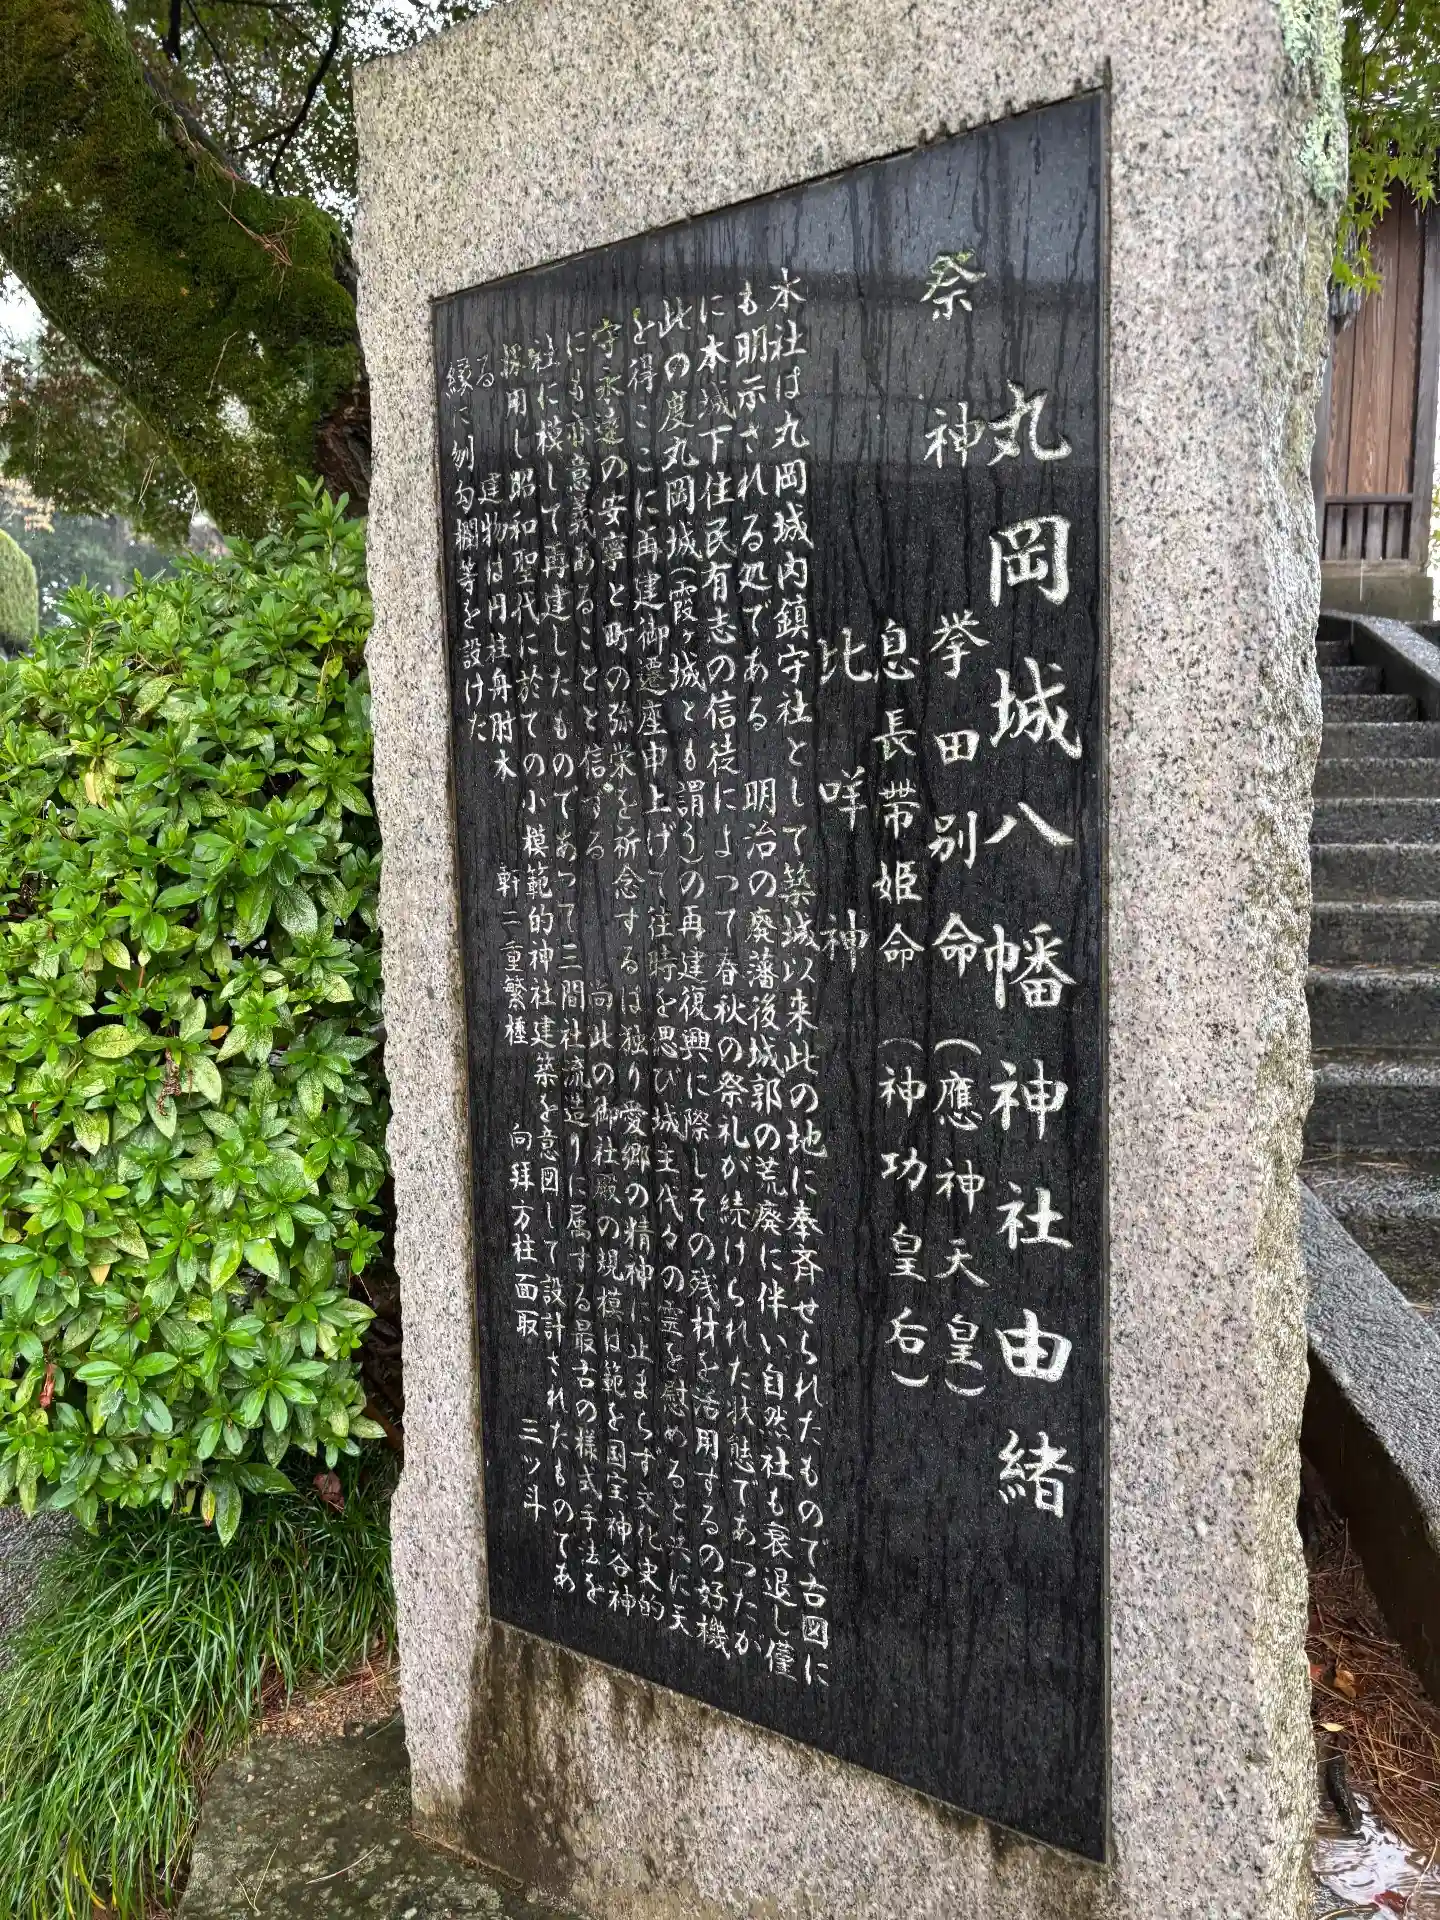 丸岡城八幡神社由緒
祭神 挙田別命(應神天皇)
息長帯姫命(神功皇后)
比咩神
本社は丸岡城内鎮守社として築城以来此の地に奉斉せられたもので古図に
も明示される処である 明治の廃藩後城郭の荒廃に伴い自然社も衰退し僅
に本城下住民有志の信徒によつて春秋の祭礼が続けられた状態であつたが
此の度丸岡城(霞ヶ城とも謂う)の再建復興に際しその残材を活用するの好機
を得ここに再建御遷座申上げて往時を思び城主代々の霊を慰めると共に天
守永遠の安寧と町の弥栄を祈念するは独り愛郷の精神に止まらず文化史的
にも亦意義あることと信ずる 尚此の御社殿の規模は範を国宝神谷神
社に模して再建したものであつて三間社流造りに属する最古の様式手法を
採用し昭和聖代に於ての小模範的神社建築を意図して設計されたものであ
る 建物は円柱舟肘木 軒二重繁種 向拝方柱面取 三ッ斗
縁に刎勾欄等を設けた